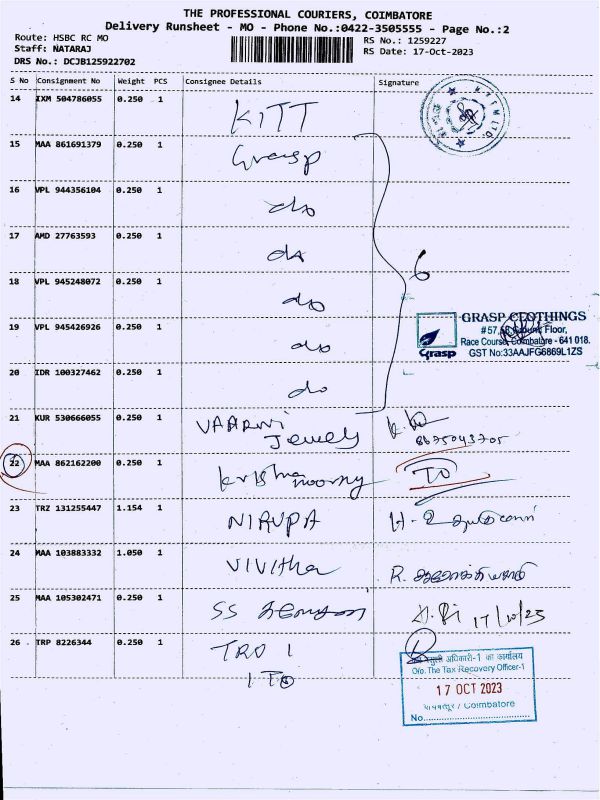 THE PROFESSIONAL COURIERS, COIMBATORE
Delivery Runsheet - MO - Phone No.:0422-3505555 - Page No.:2
Route: HSBC RC MO
RS No.: 1259227
Staff: NATARAJ
RS Date: 17-Oct-2023
DRS No.: DCJB125922702
S No Consignment No Weight PCS Consignee Details Signature
14 IXM 504786055 0.250 1 KITT
15 MAA 861691379 0.250 1 Grasp
16 VPL 944356104 0.250 1 do
17 AMD 27763593 0.250 1 do
6
18 VPL 945248072 0.250 1 do
GRASP CLOTHINGS
Floor,
Race Course, Coimbatore - 641 018.
Grasp GST No:33AAJFG6869L1ZS
19 VPL 945426926 0.250 1 do
20 IDR 100327462 0.250 1 do
21 KUR 530666055 0.250 1 VAARNI
Jewels
8675043705
22 MAA 862162200 0.250 1 Krishna
moorthy
TO
23 TRZ 131255447 1.154 1 NIRUPA
24 MAA 103883332 1.050 1 VIVItha
25 MAA 105302471 0.250 1 SS
17/10/23
26 TRP 8226344 0.250 1 TRO 1
ITO
अधिकारी-1 का कार्यालय
O/o. The Tax Recovery Officer-1
17 OCT 2023
Coimbatore
No.